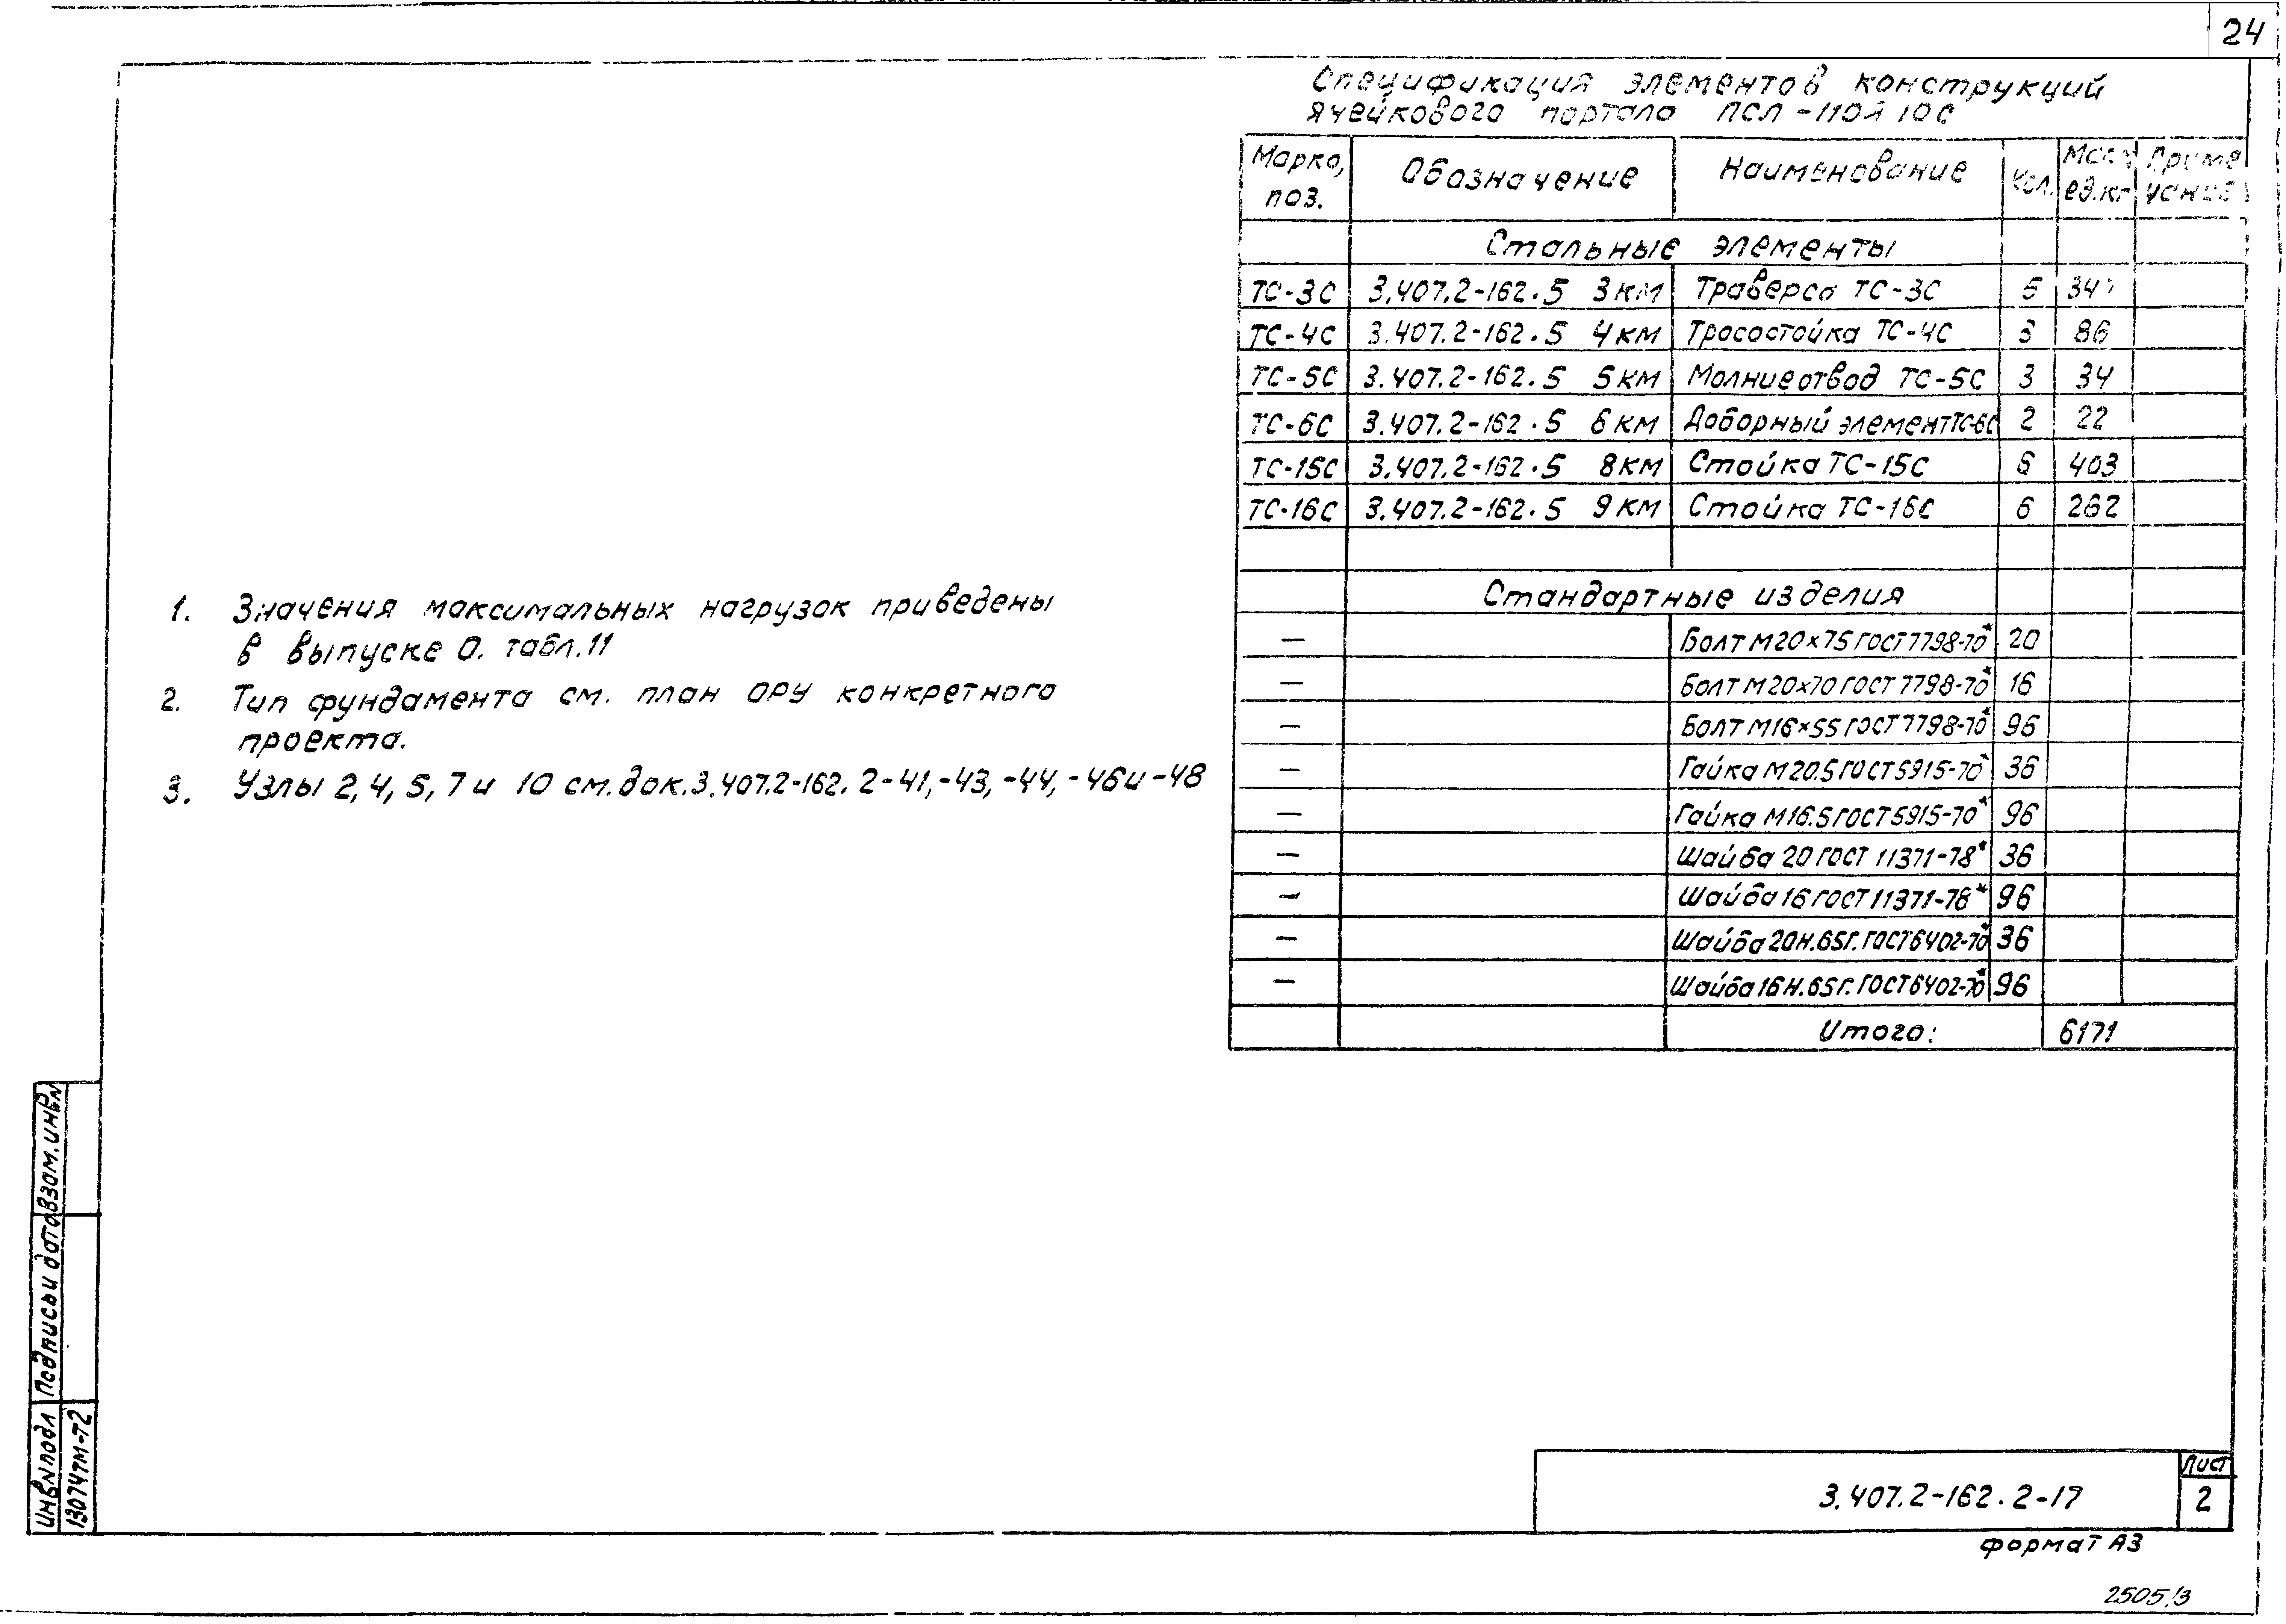 24
Спецификация элементов конструкций
ячейкового портала ПСЛ-110Я10С
Марка, поз. Обозначение Наименование Кол. Масса ед.кг Примечание
Стальные элементы
ТС-3С 3.407.2-162.5 3КМ Траверса ТС-3С
ТС-4С 3.407.2-162.5 4КМ Тросостойка ТС-4С 3 86
ТС-5С 3.407.2-162.5 5КМ Молниеотвод ТС-5С 3 34
ТС-6С 3.407.2-162.5 6КМ Доборный элемент ТС-6С 2 22
ТС-15С 3.407.2-162.5 8КМ Стойка ТС-15С 6 403
ТС-16С 3.407.2-162.5 9КМ Стойка ТС-16С 6 262
Стандартные изделия
— Болт М20×75 ГОСТ 7798-70* 20
— Болт М20×70 ГОСТ 7798-70* 16
— Болт М16×55 ГОСТ 7798-70* 96
— Гайка М20.5 ГОСТ 5915-70* 36
— Гайка М16.5 ГОСТ 5915-70* 96
— Шайба 20 ГОСТ 11371-78* 36
— Шайба 16 ГОСТ 11371-78* 96
— Шайба 20Н.65Г. ГОСТ 6402-70* 36
— Шайба 16Н.65Г. ГОСТ 6402-70* 96
Итого: 6171
1. Значения максимальных нагрузок приведены
в выпуске 0. табл.11
2. Тип фундамента см. план ОРУ конкретного
проекта.
3. Узлы 2,4,5,7 и 10 см. док.3.407.2-162.2-41,-43,-44,-46 и -48
Взам.инв.N
Подпись и дата
Инв.N подл
13074тм-т2
3.407.2-162.2-17
Лист
2
формат А3
2505/3